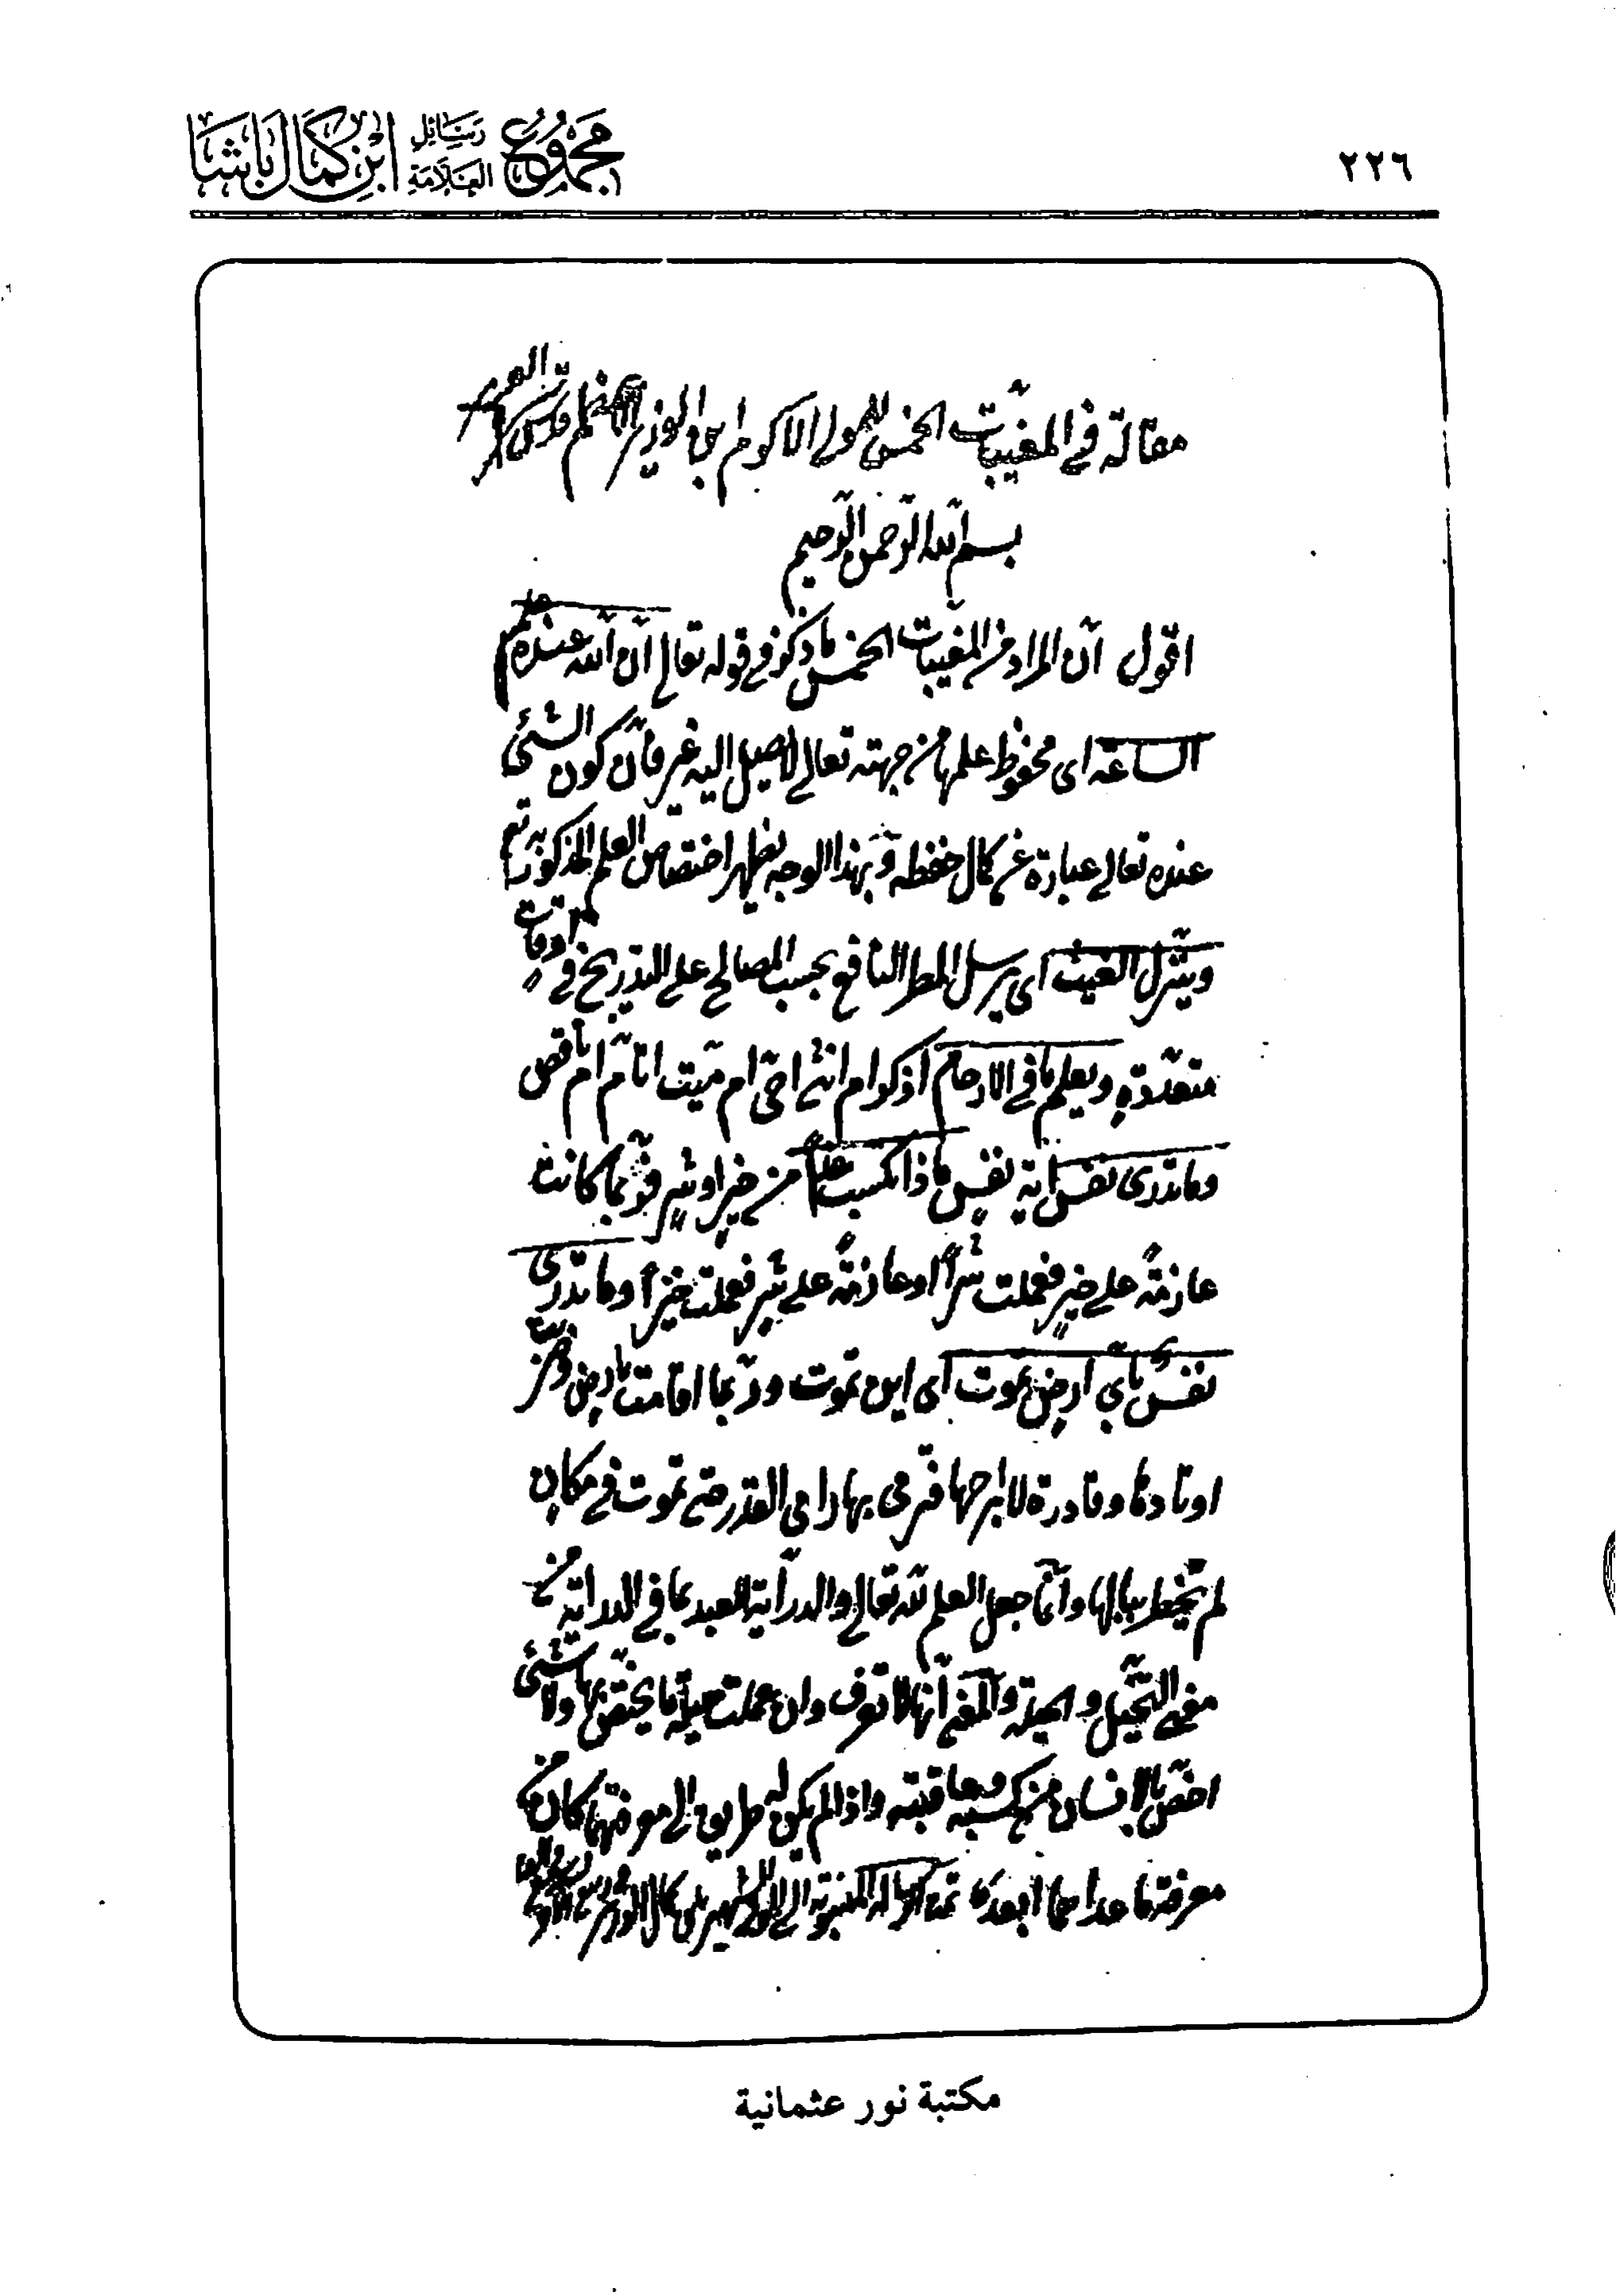 مجموع رسائل العلامة ابن كمال باشا
٢٢٦
مقالة في المغيبات الخمس للمولى الاكرم ابن الوزير الاعظم قدس سره
بسم الله الرحمن الرحيم
اقول ان المراد من المغيبات الخمس ما ذكر في قوله تعالى ان الله عنده علم
الساعة اى محفوظ علمها من جهته تعالى لا يصل اليه غيره فان كون الشئ
عنده تعالى عبارة عن كمال حفظه وبهذا الوجه يظهر اختصاص العلم المذكور به تع
وينزل الغيث اى يرسل المطر النافع بحسب المصالح على التدريج في اوقات
متعددة ويعلم ما في الارحام اذكر ام انثى احى ام ميت اتام ام ناقص
وما تدرى نفس اية نفس ماذا تكسب غدا من خير او شر فربما كانت
عازمة على خير فعملت شرا او عازمة على شر فعملت خيرا وما تدرى
نفس باي ارض تموت اى اين تموت وربما اقامت بارض وضربت
اوتادها وقادرة لا ابرحها فترمى بها رامى القدر حتى تموت في مكان
لم يخطر ببالها وانما جعل العلم لله تعالى والدراية للعبد لما في الدراية من
معنى التحيل والحيلة والمعنى انها لا تعرف وان عملت حيلة ما يختص بها ولا شئ
اخص بالانسان من كسبه وعاقبته واذا لم يكن له طريق الى معرفتهما كان من
معرفة ما عداهما ابعد تمت الرسالة المنسوبة الى
مكتبة نور عثمانية